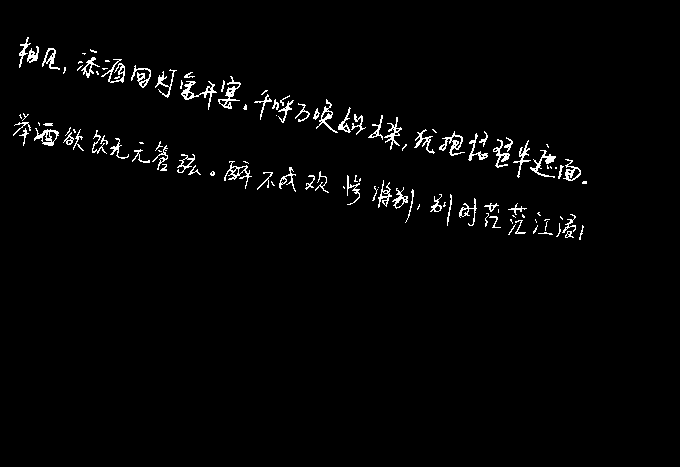 相见，添酒回灯重开宴。千呼万唤始出来，犹抱琵琶半遮面。
举酒欲饮无无管弦。醉不成欢惨将别，别时茫茫江浸